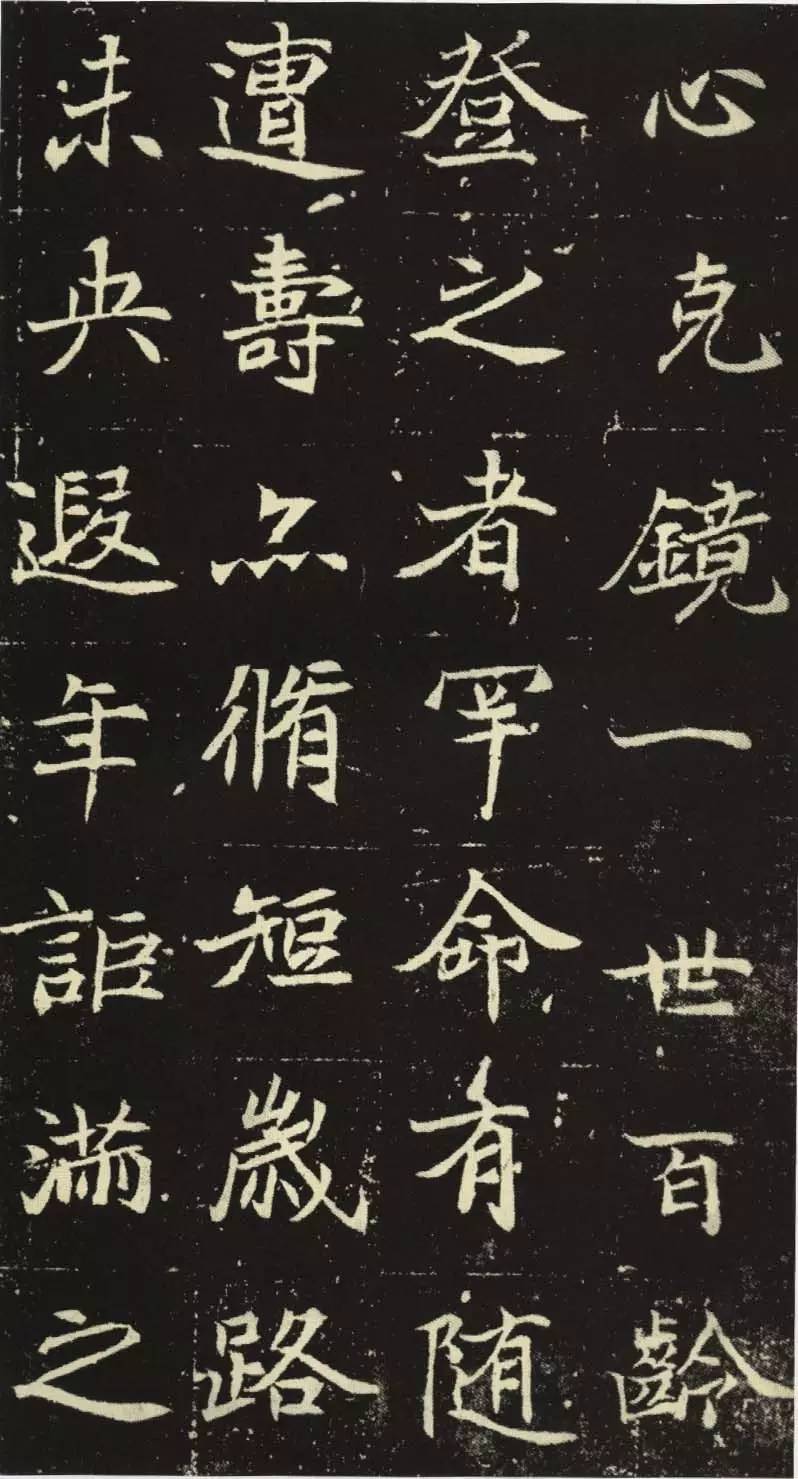 心克鏡一世百齡
登之者罕命有随
遭壽夭脩短歲路
未央遐年詎滿之